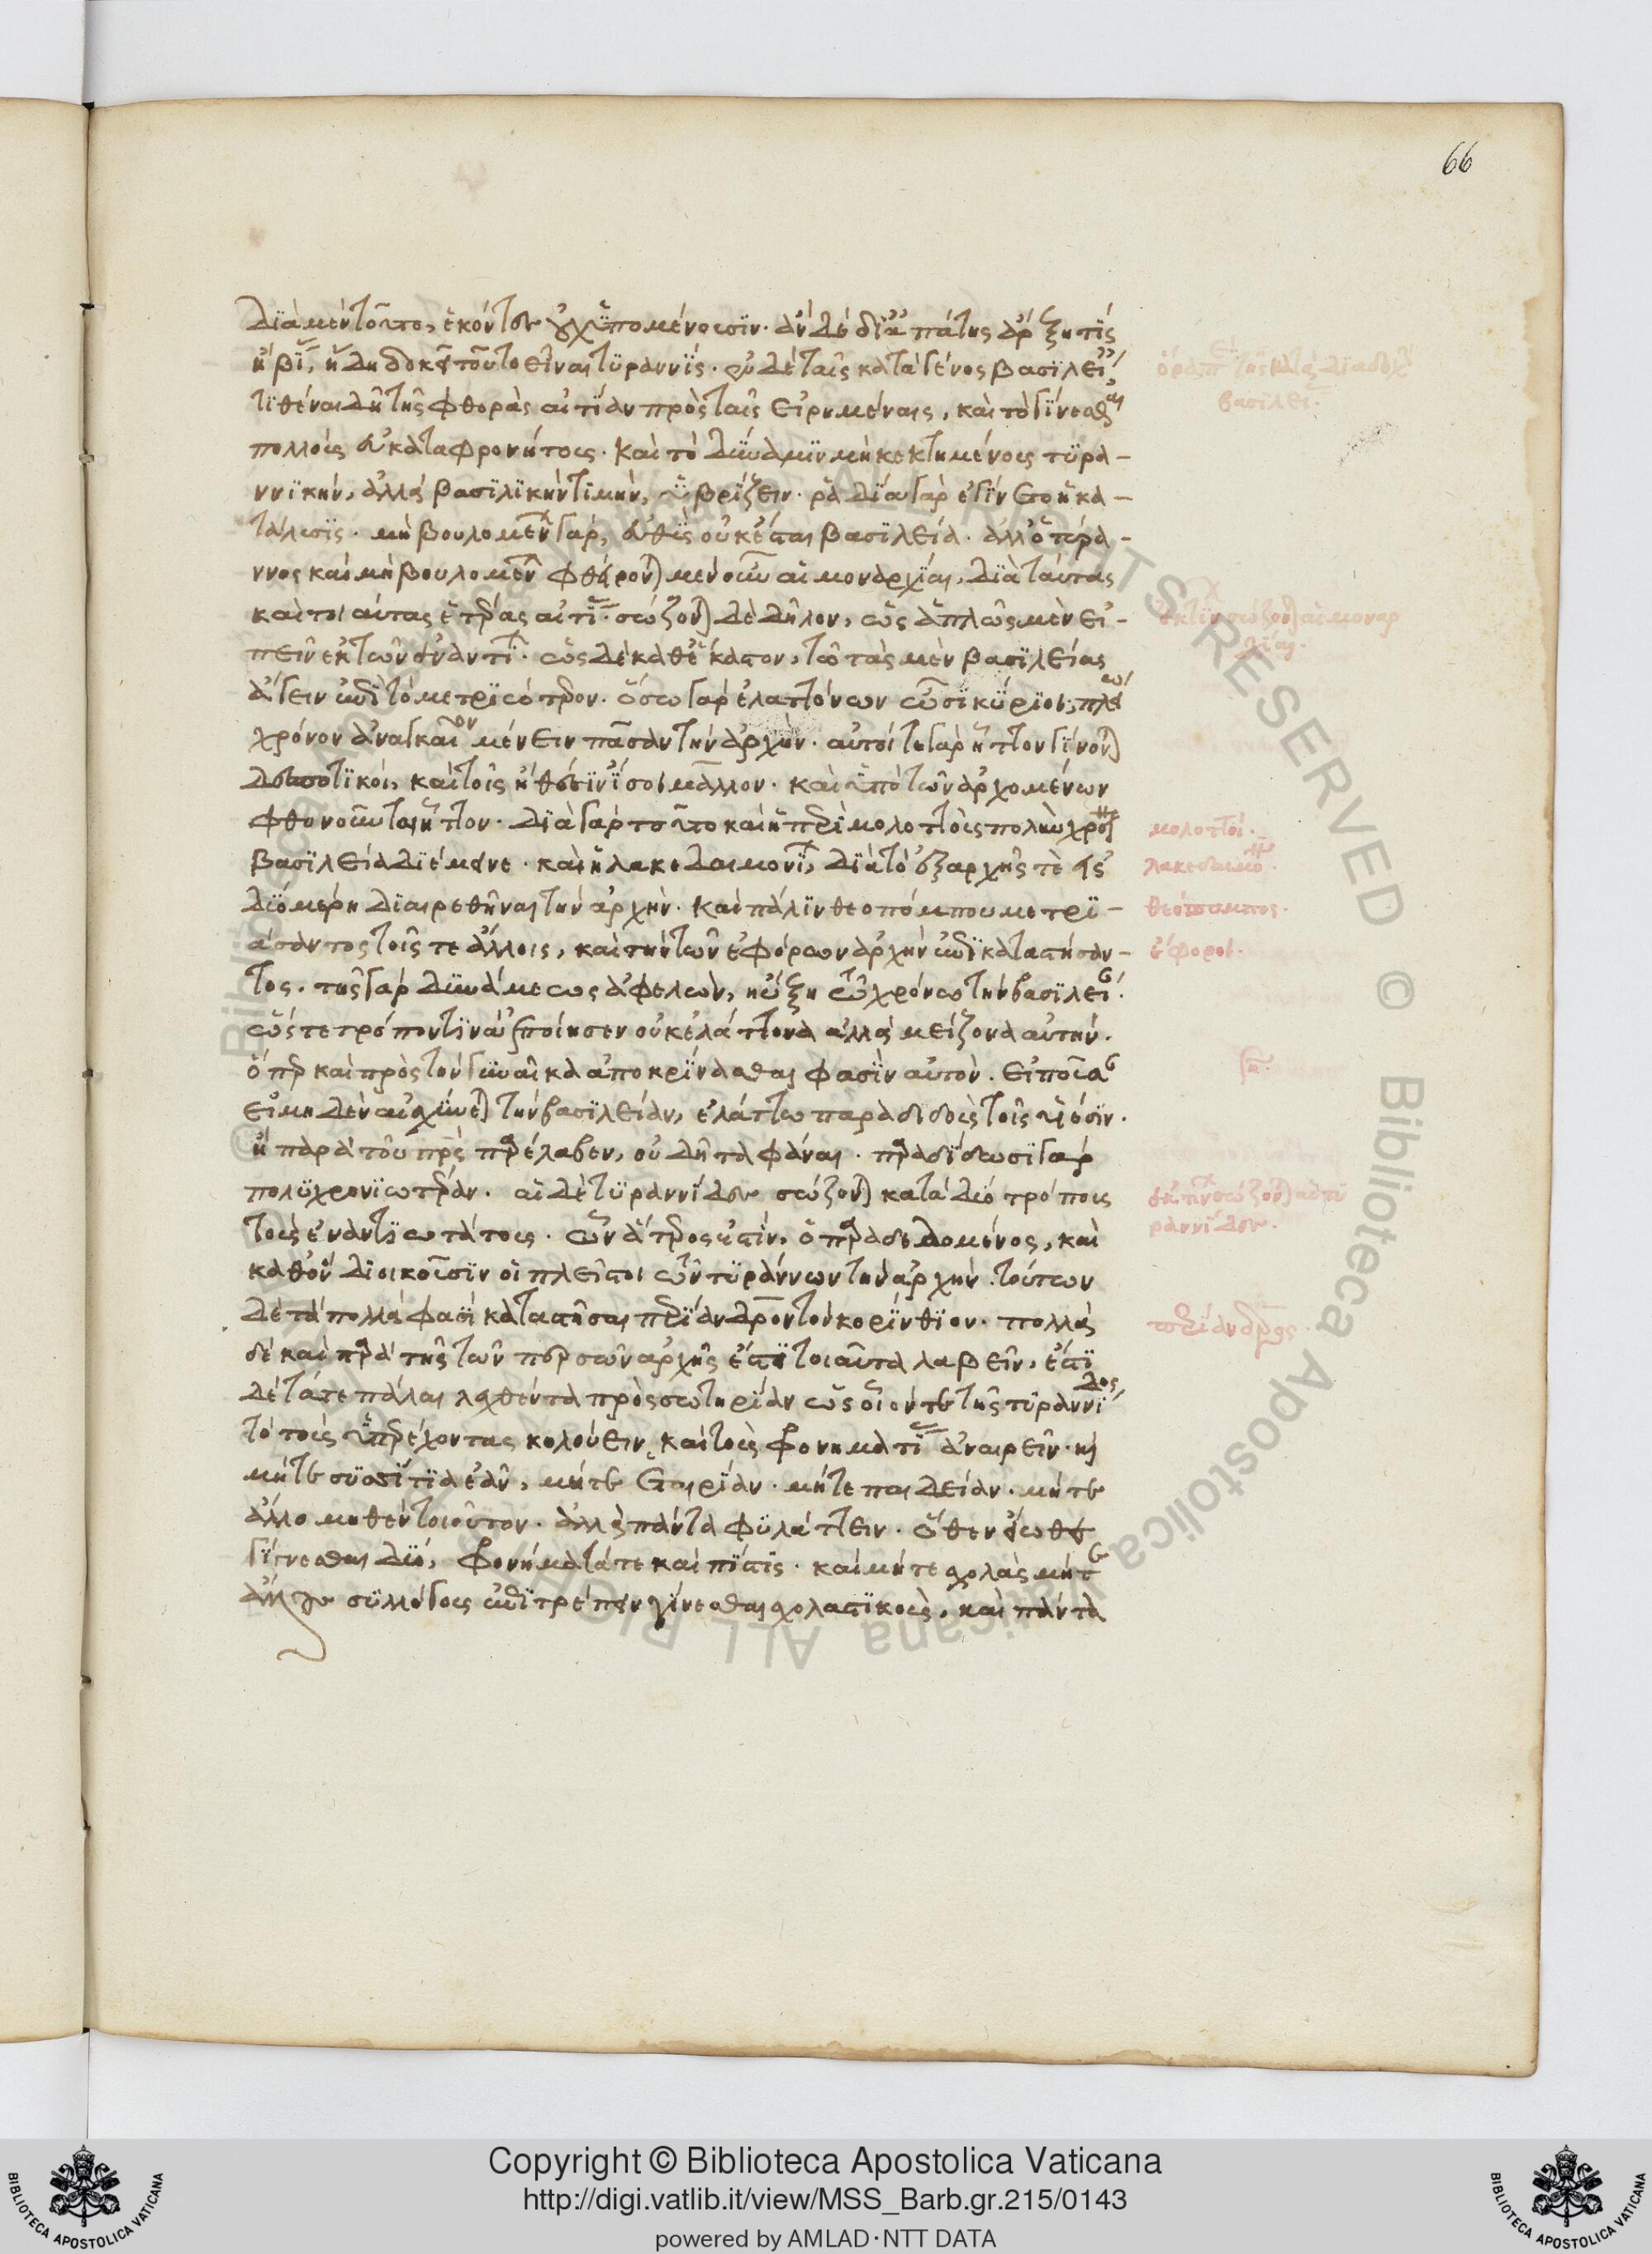 66
διὰ μὲν τοῦτο, ἑκόντες οὐχ ὑπομένουσιν. ἂν δὲ δι' ἀπάτης ἄρξῃ τίς
ἢ βίας, ἤδη δοκεῖ τοῦτο εἶναι τυραννίς. ἐν δὲ ταῖς κατὰ γένος βασιλείαις
τιθέναι δὴ τῆς φθορᾶς αἰτίαν πρὸς ταῖς εἰρημέναις, καὶ τὸ γίνεσθαι
πολλοὺς εὐκαταφρονήτους. καὶ τὸ δύναμιν μὴ κεκτημένους τυρα-
ννικὴν, ἀλλὰ βασιλικὴν τιμὴν, ὑβρίζειν. ῥᾳδία γὰρ ἐγίνετο ἡ κα-
τάλυσις. μὴ βουλομένων γὰρ, εὐθὺς οὐκ ἔσται βασιλεία. ἀλλ' ὁ τύρα-
ννος καὶ μὴ βουλομένων φθείρονται μὲν οὖν αἱ μοναρχίαι, διὰ ταύτας
καὶ τοιαύτας ἑτέρας αἰτίας. σώζονται δὲ δῆλον, ὡς ἁπλῶς μὲν εἰ-
πεῖν ἐκ τῶν ἐναντίων. ὡς δὲ καθ' ἕκαστον, τῷ τὰς μὲν βασιλείας
ἄγειν ἐπὶ τὸ μετριώτερον. ὅσω γὰρ ἐλαττόνων ὦσι κύριοι, πλείω
χρόνον ἀναγκαῖον μένειν πᾶσαν τὴν ἀρχήν. αὐτοί τε γὰρ ἧττον γίνονται
δεσποτικοὶ, καὶ τοῖς ἤθεσιν ἴσοι μᾶλλον. καὶ ὑπὸ τῶν ἀρχομένων
φθονοῦνται ἧττον. διὰ γὰρ τοῦτο καὶ ἡ περὶ μολοττοὺς πολὺν χρόνον
βασιλεία διέμενε. καὶ ἡ λακεδαιμονίων, διὰ τὸ ἐξαρχῆς τὲ εἰς
δύο μέρη διαιρεθῆναι τὴν ἀρχήν. καὶ πάλιν θεοπόμπου μετρι-
άσαντος τοῖς τε ἄλλοις, καὶ τὴν τῶν ἐφόρων ἀρχὴν ἐπικαταστήσαν-
τος. τῆς γὰρ δυνάμεως ἀφελὼν, ηὔξησε τῷ χρόνω τὴν βασιλείαν.
ὥστε τρόπον τινὰ ἐποίησεν οὐκ ἐλάττονα ἀλλὰ μείζονα αὐτήν.
ὅπερ καὶ πρὸς τὴν γυναῖκα ἀποκρίνασθαι φασὶν αὐτὸν. εἰποῦσαν
εἰ μηδὲν αἰσχύνεται τὴν βασιλείαν, ἐλάττω παραδιδοὺς τοῖς υἱέσιν.
ἢ παρὰ τοῦ πατρὸς παρέλαβεν, οὐ δῆτα φάναι. παραδίδωσι γὰρ
πολυχρονιωτέραν. αἱ δὲ τυραννίδες σώζονται κατὰ δύο τρόπους
τοὺς ἐναντιωτάτους. ὧν ἅτερος ἐστὶν, ὁ παραδεδομένος, καὶ
καθ' ὃν διοικοῦσιν οἱ πλεῖστοι τῶν τυράννων τὴν ἀρχήν. τούτων
δὲ τὰ πολλὰ φασὶ καταστῆσαι περίανδρον τὸν κορίνθιον. πολλὰ
δὲ καὶ παρὰ τῆς τῶν περσῶν ἀρχῆς ἔστι τοιαῦτα λαβεῖν. ἔστι
δὲ τά τε πάλαι λεχθέντα πρὸς σωτηρίαν ὡς οἷόν τε τῆς τυραννίδος
τὸ τοὺς ὑπερέχοντας κολούειν, καὶ τοὺς φρονηματίας ἀναιρεῖν. καὶ
μήτε συσσίτια ἐᾶν, μήτε ἑταιρίαν. μήτε παιδείαν. μήτε
ἄλλο μηθὲν τοιοῦτον. ἀλλὰ πάντα φυλάττειν. ὅθεν εἴωθε
γίγνεσθαι δύο, φρονήματά τε καὶ πίστις. καὶ μήτε σχολὰς μήτε
ἄλλους συλλόγους ἐπιτρέπειν γίνεσθαι σχολαστικοὺς, καὶ πάντα
μολοττοί.
λακεδαιμό.
θεόπομπος.
ἔφοροι.
περίανδρος
Copyright © Biblioteca Apostolica Vaticana
http://digi.vatlib.it/view/MSS_Barb.gr.215/0143
powered by AMLAD·NTT DATA